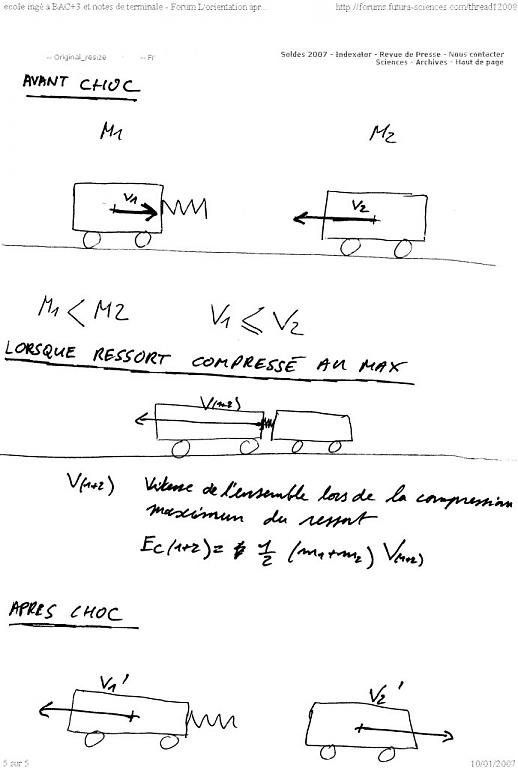 ecole ingé à BAC+3 et notes de terminale - Forum L'orientation apr... http://forums.futura-sciences.com/thread12009
-- Original_resize -- Fr
Soldes 2007 - Indexator - Revue de Presse - Nous contacter
Sciences - Archives - Haut de page
AVANT CHOC
M1 M2
V1 V2
M1 < M2 V1 ⩽ V2
LORSQUE RESSORT COMPRESSÉ AU MAX
V(1+2)
V(1+2) Vitesse de l'ensemble lors de la compression
maximum du ressort
Ec(1+2) = 1/2 (m1+m2) V(1+2)
APRES CHOC
V1' V2'
5 sur 5 10/01/2007